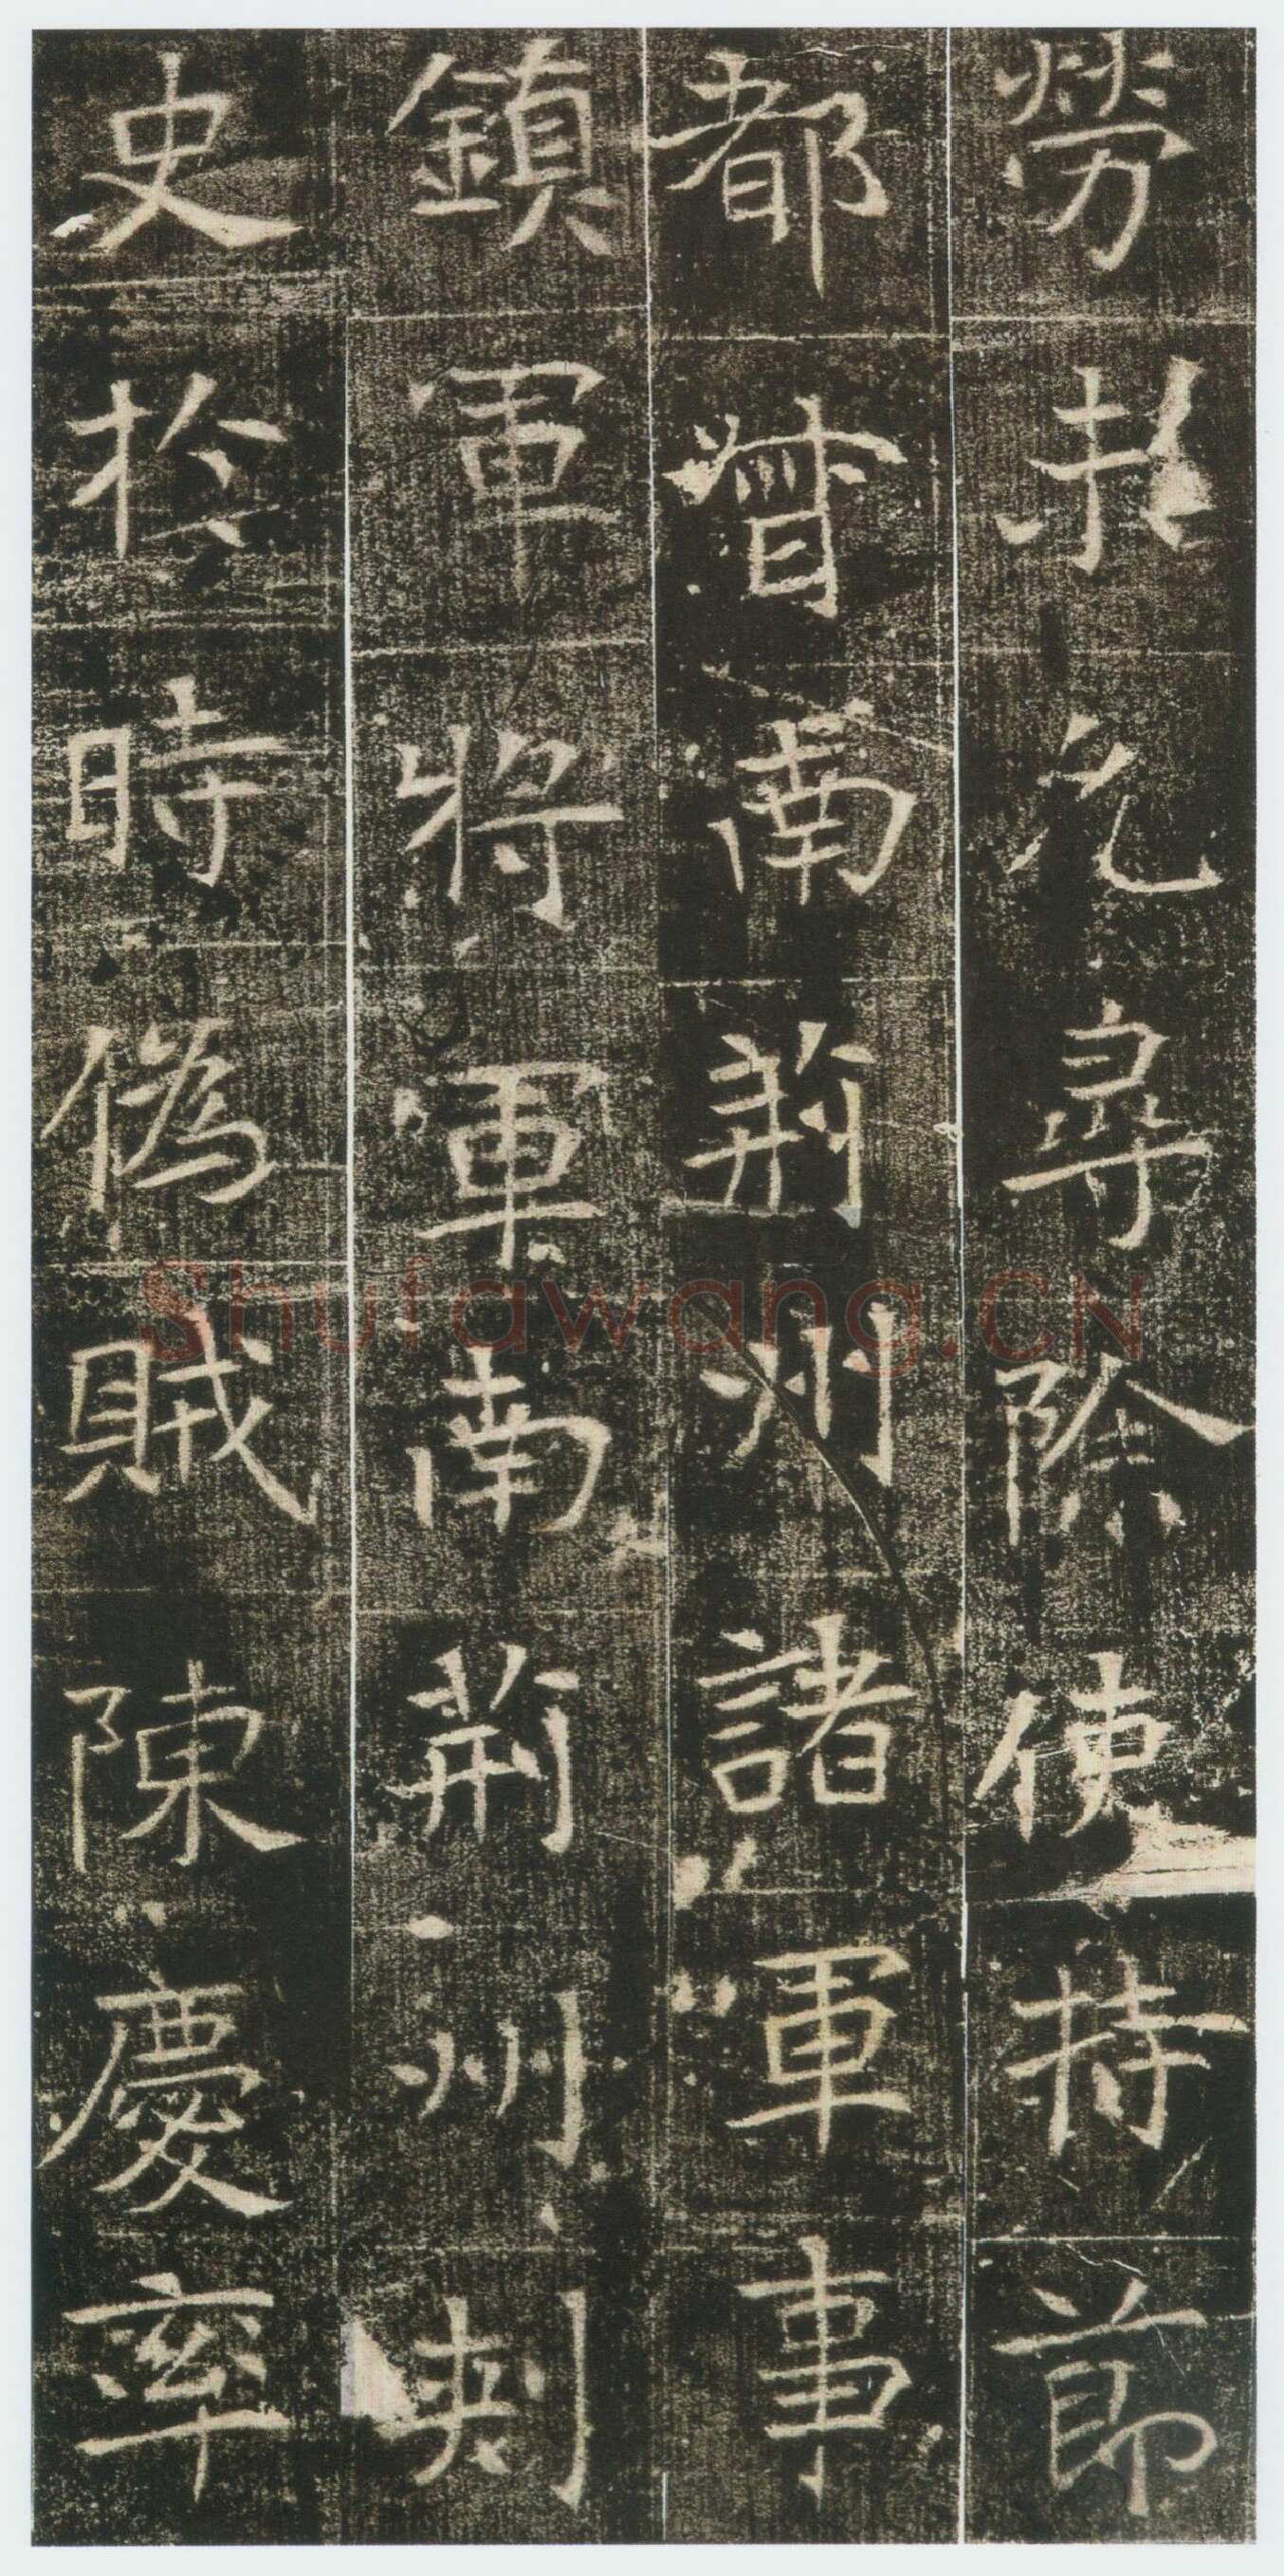 勞允尋除使持節
都督南荊州諸軍事
鎮軍將軍南荊州刺
史於時偽賊陳慶率
Shufawang.CN